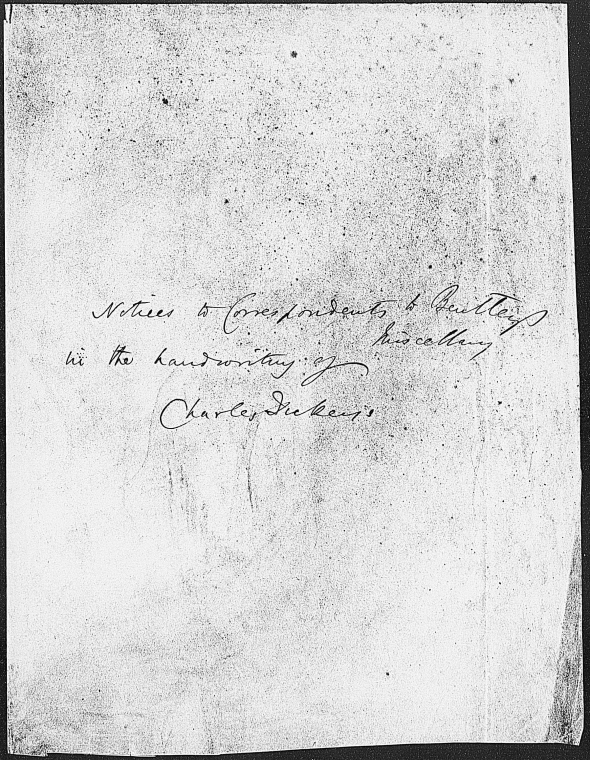 Notices to Correspondents to Bentleys
Miscellany
in the handwriting of
Charles Dickens